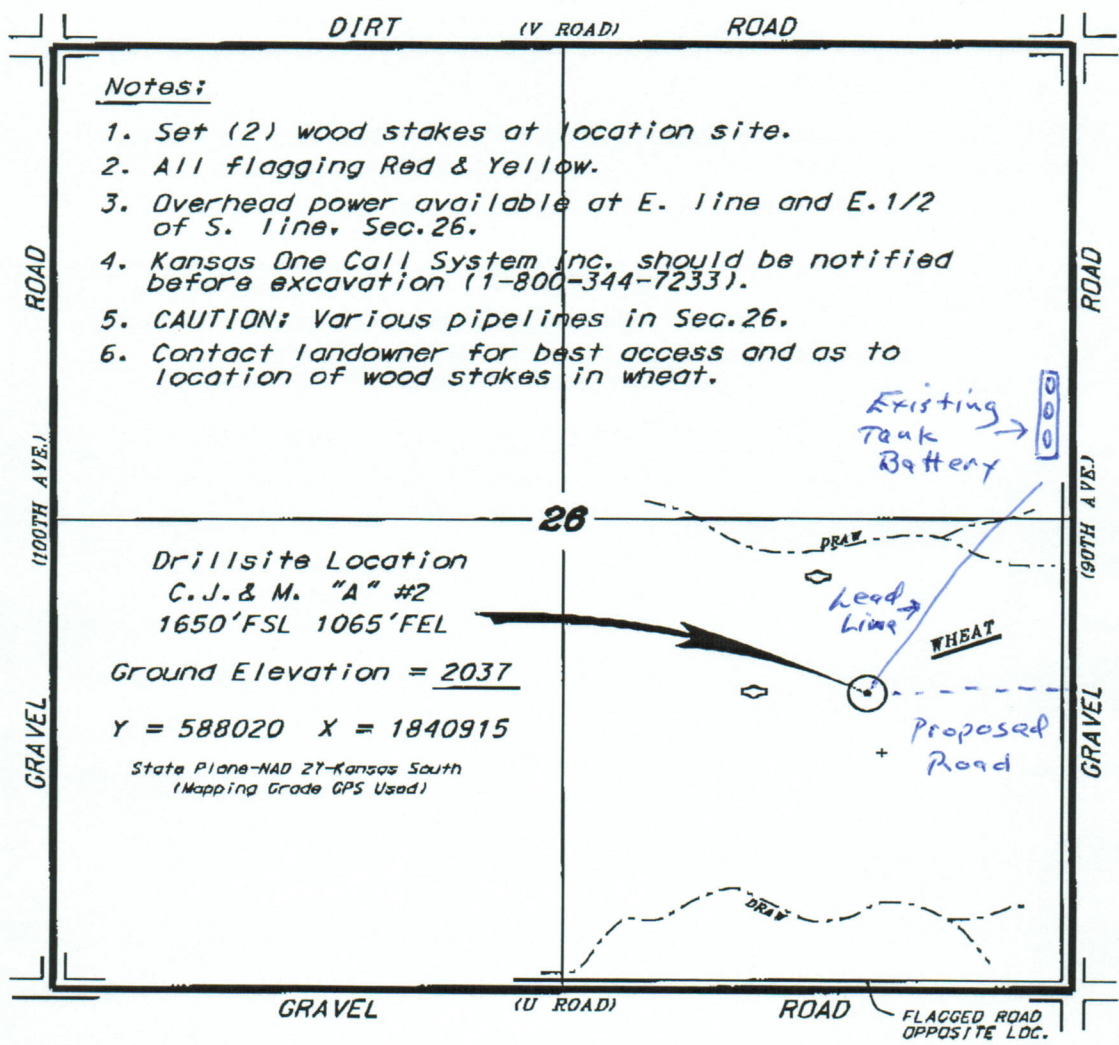 DIRT (V ROAD) ROAD
Notes:
1. Set (2) wood stakes at location site.
2. All flagging Red & Yellow.
3. Overhead power available at E. line and E.1/2
of S. line, Sec.26.
4. Kansas One Call System inc. should be notified
before excavation (1-800-344-7233).
5. CAUTION: Various pipelines in Sec.26.
6. Contact landowner for best access and as to
location of wood stakes in wheat.
ROAD
(100TH AVE.)
GRAVEL
ROAD
(90TH AVE.)
GRAVEL
Existing
Tank
Battery
26
DRAW
Drillsite Location
C.J.& M. "A" #2
1650'FSL 1065'FEL
Ground Elevation = 2037
Y = 588020 X = 1840915
State Plane-NAD 27-Kansas South
(Mapping Grade GPS Used)
Lead
Line
WHEAT
Proposed
Road
DRAW
GRAVEL (U ROAD) ROAD
FLAGGED ROAD
OPPOSITE LOC.